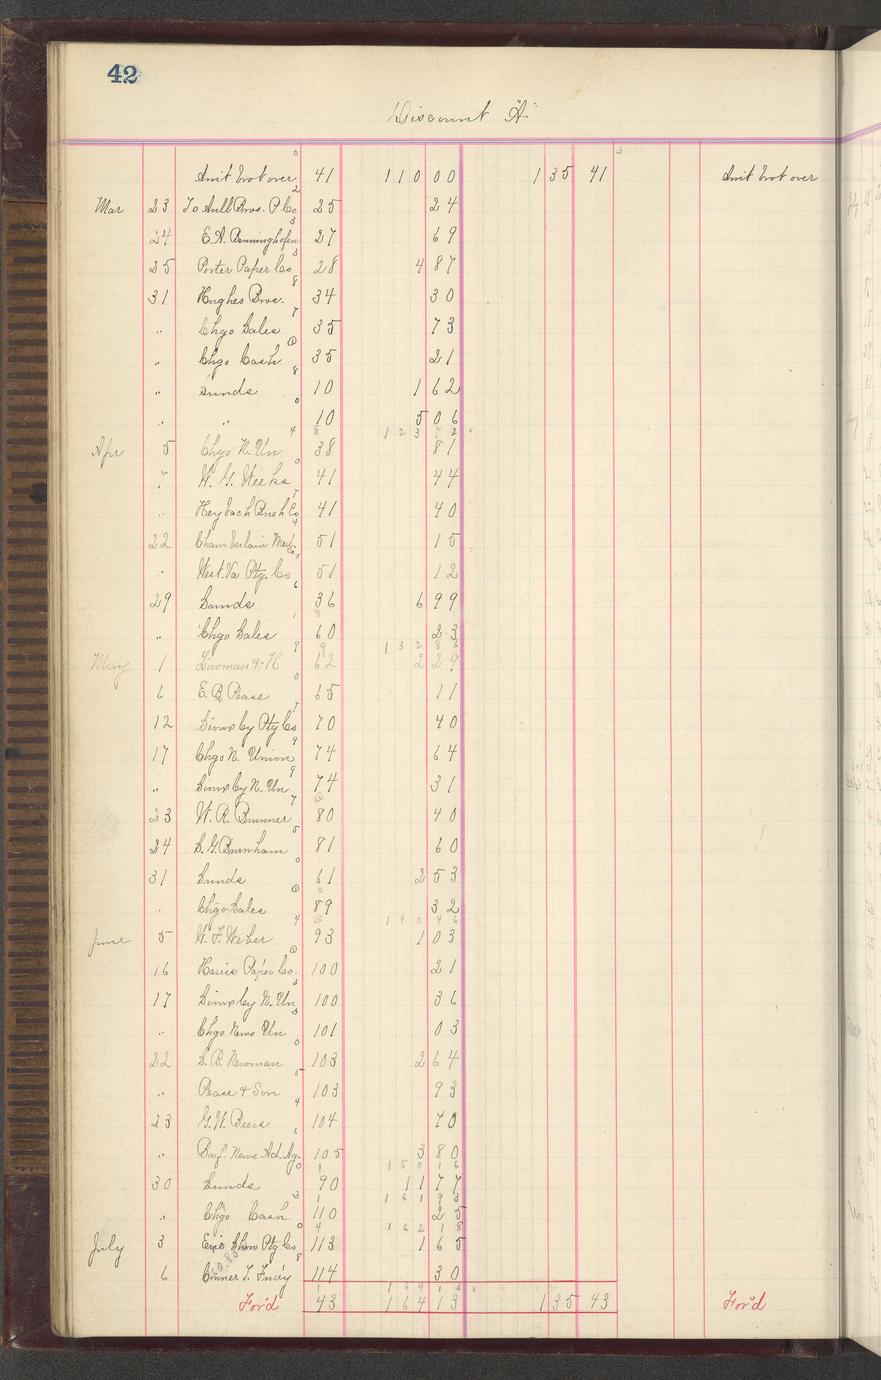 42
Discount "A"
Amt brot over 41 110 00 135 41 Amt brot over
Mar 23 To Aull Bros. P Co 25 24
24 E.A. Benninghofen 27 69
25 Porter Paper Co 28 4 87
31 Hughes Bros. 34 30
" Chgo Sales 35 73
" Chgo Cash 35 21
" Sunds 10 1 62
" 10 5 06
123 72
Apr 5 Chgo N. Un 38 81
" W. G. Weeks 41 44
" Heybach Bush Co 41 40
22 Chamberlain Med. Co 51 15
" West. Va Ptg. Co 51 12
29 Sunds 36 6 99
" Chgo Sales 60 23
132 86
May 1 Lowman & H 62 2 29
6 E. B. Pease 65 11
12 Simxby Ptg Co 70 40
17 Chgo N. Union 74 64
" Simxby N. Un 74 31
23 W. R. Bimmer 80 40
24 S. G. Burnham 81 60
31 Sunds 61 2 53
" Chgo Sales 89 32
140 46
June 5 W. F. Weber 93 1 03
16 Harris Paper Co. 100 21
17 Simxby N. Un 100 36
" Chgo News Un 101 03
22 S. B. Newman 103 2 64
" Pease & Son 103 93
23 G. W. Beers 104 70
" Buf. News Ad. Ag. 105 3 80
150 16
30 Sunds 90 11 77
161 93
" Chgo Cash 110 25
162 18
July 3 Erie Show Ptg Co 113 1 65
6 Conner T. Fndy 114 30
164 13
Ford 43 164 13 135 43 Ford